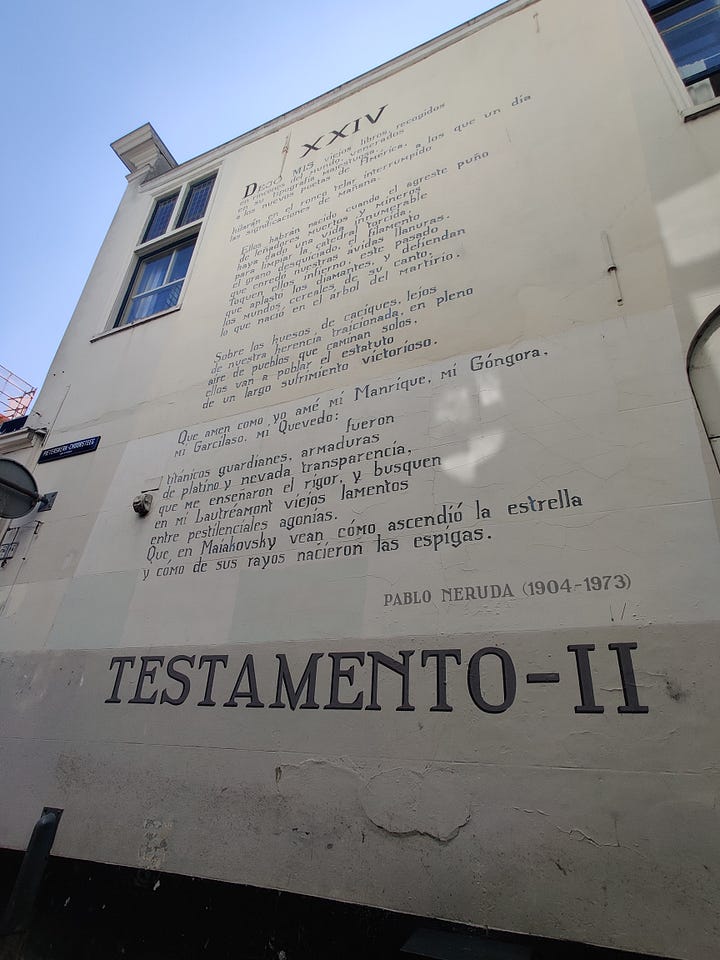 XXIV
DEJO MIS viejos libros, recogidos
en rincones del mundo, venerados
en su tipografía majestuosa,
a los nuevos poetas de América, a los que un día
hilarán en el ronco telar interrumpido
las significaciones de mañana.
Ellos habrán nacido cuando el agreste puño
de leñadores muertos y mineros
haya dado una vida innumerable
para limpiar la catedral torcida,
el grano desquiciado, el filamento
que enredó nuestras ávidas llanuras.
Toquen ellos infierno, este pasado
que aplastó los diamantes, y defiendan
los mundos cereales de su canto,
lo que nació en el árbol del martirio.
Sobre los huesos de caciques, lejos
de nuestra herencia traicionada, en pleno
aire de pueblos que caminan solos,
ellos van a poblar el estatuto
de un largo sufrimiento victorioso.
Que amen como yo amé mi Manrique, mi Góngora,
mi Garcilaso, mi Quevedo:
fueron
titánicos guardianes, armaduras
de platino y nevada transparencia,
que me enseñaron el rigor, y busquen
en mi Lautréamont viejos lamentos
entre pestilenciales agonías.
Que en Maiakovsky vean cómo ascendió la estrella
y cómo de sus rayos nacieron las espigas.
PABLO NERUDA (1904-1973)
TESTAMENTO-II
PIETERSKERK-CHOORSTEEG